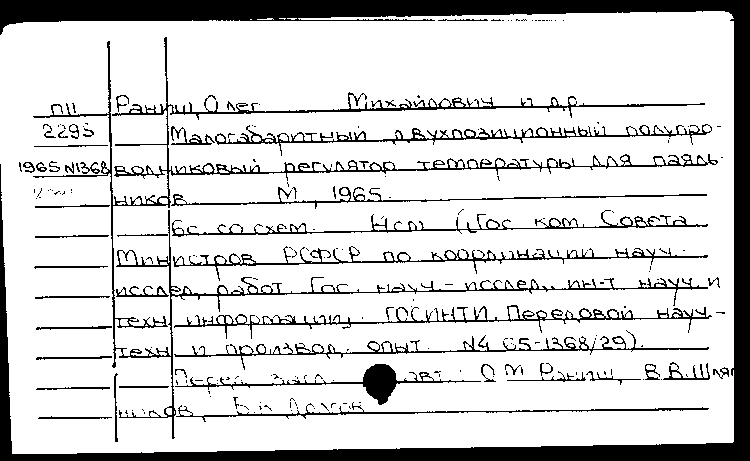 ПII Раниш, Олег Михайлович и др.
2293 Малогабаритный двухпозиционный полупро-
1965 N1368 водниковый регулятор температуры для паяль-
ников М, 1965.
6с. со схем. (Гос ком. Совета
Министров РСФСР по координации науч.-
исслед. работ Гос. науч-исслед. ин-т науч. и
техн информации. ГОСИНТИ. Передовой науч.-
техн и производ. опыт. N4 65-1368/29).
Перед. загл. авт.: О М Раниш, В.В. Шляп
ников, Б.